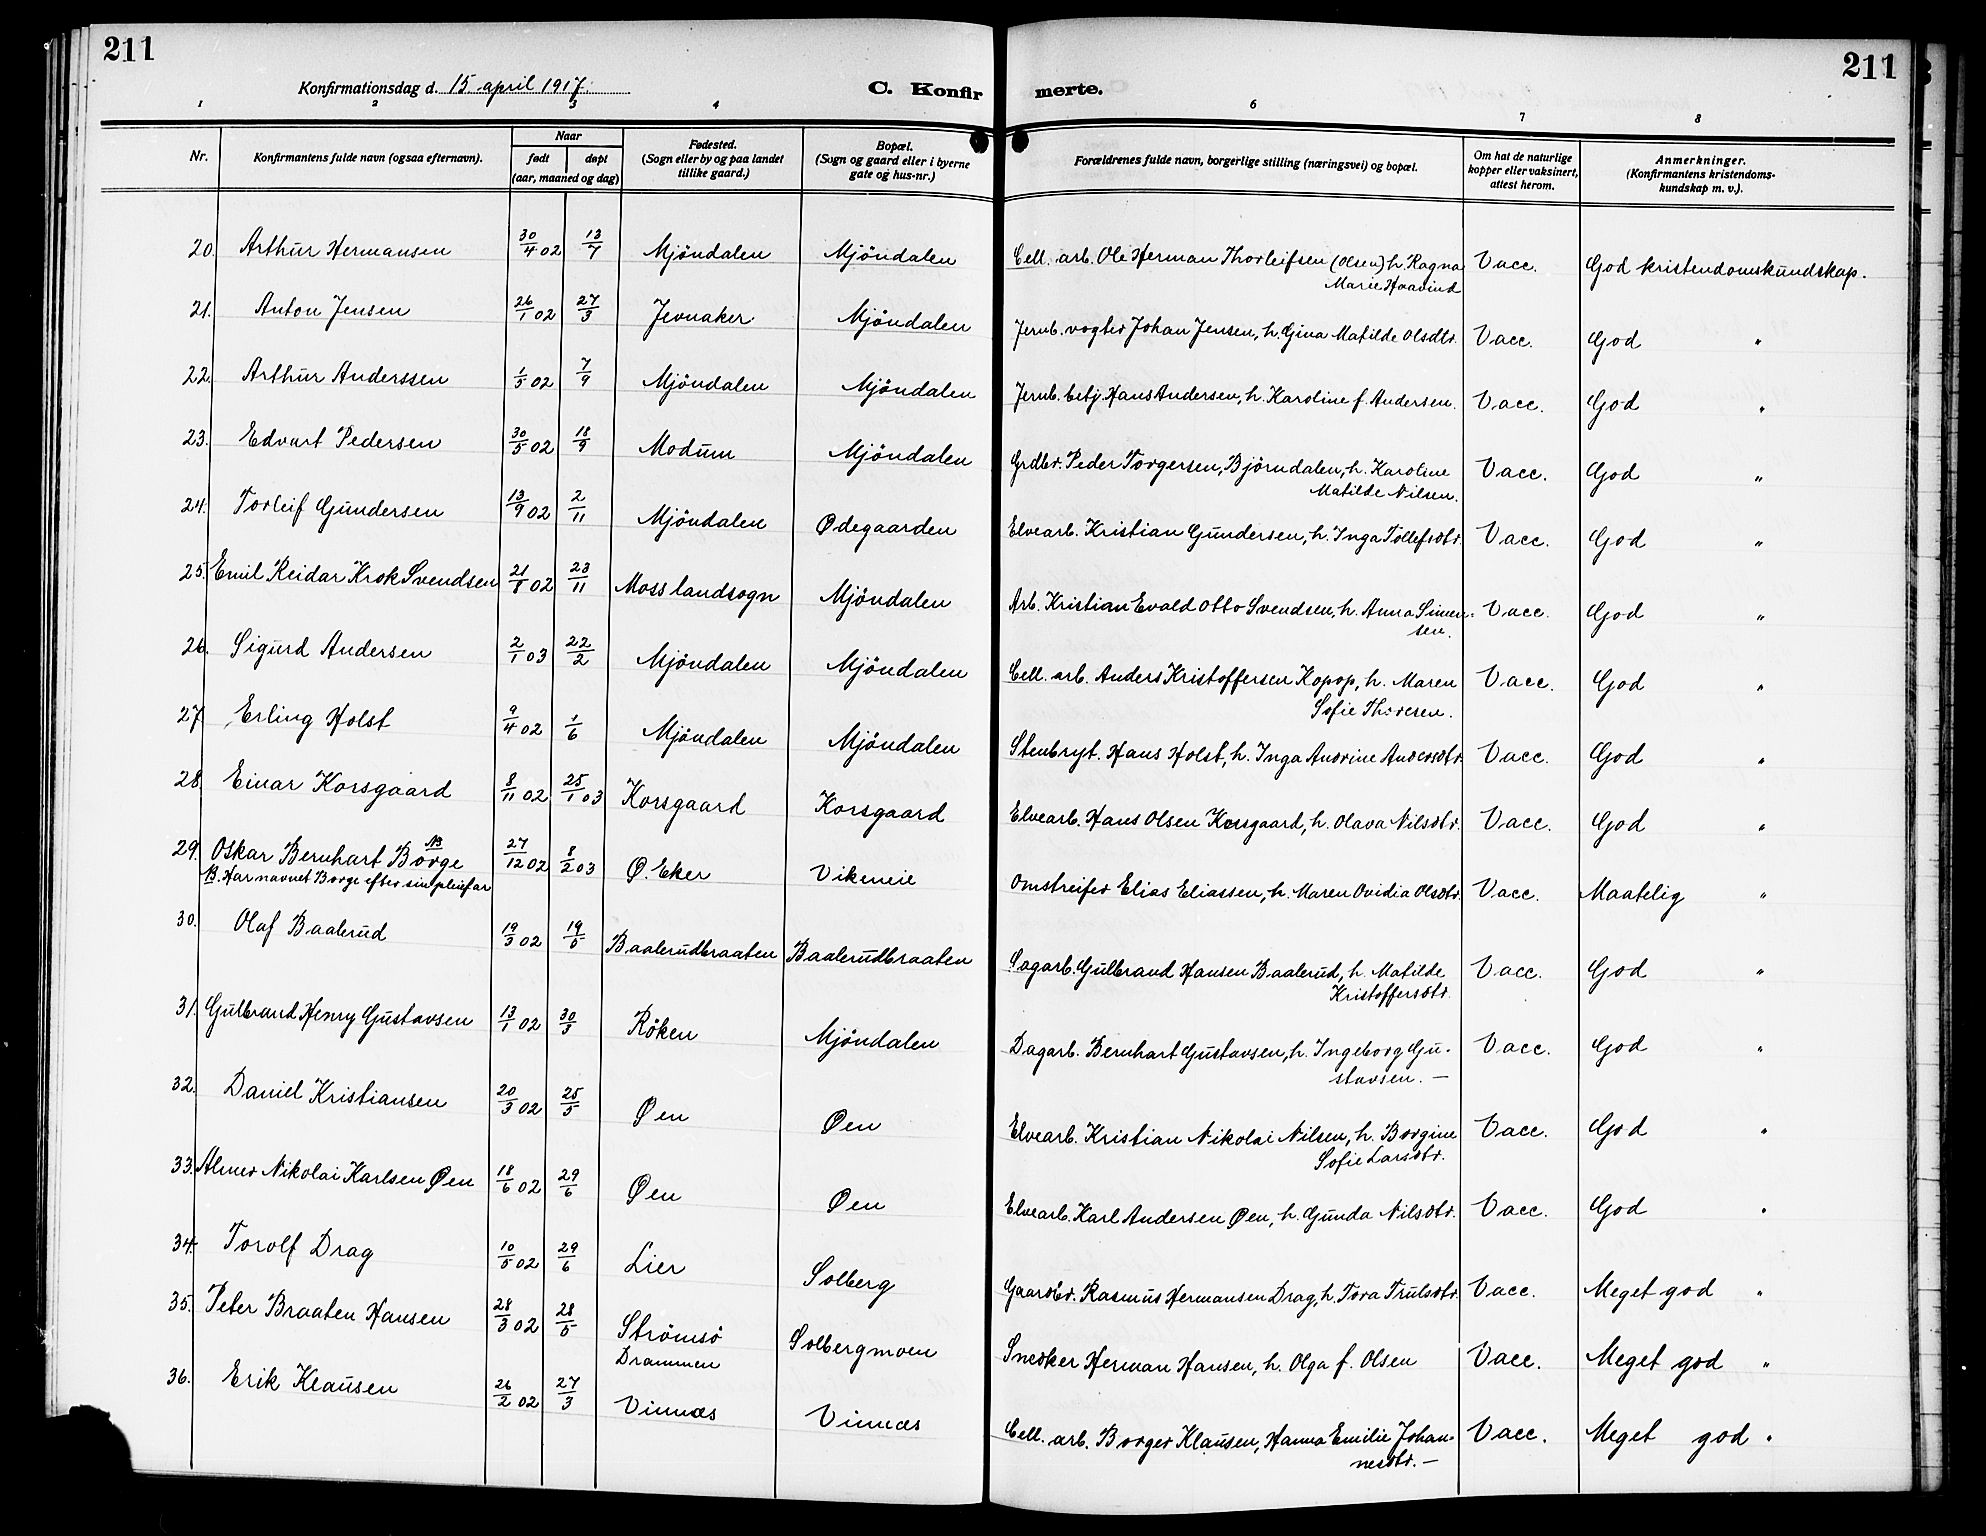 211
211
Konfirmationsdag d. 15 april 1917.
C. Konfirmerte.
1 2 3 4 5 6 7 8
Nr.
Konfirmantens fulde navn (ogsaa efternavn).
Naar
født
døpt
(aar, maaned og dag)
Fødested.
(Sogn eller by og paa landet
tillike gaard.)
Bopæl.
(Sogn og gaard eller i byerne
gate og hus-nr.)
Forældrenes fulde navn, borgerlige stilling (næringsvei) og bopæl.
Om hat de naturlige
kopper eller vaksinert,
attest herom.
Anmerkninger.
(Konfirmantens kristendoms-
kundskap m. v.).
20. Arthur Hermansen 30/4 02 13/7 Mjöndalen Mjöndalen Cell. arb. Ole Herman Thorleifsen (Olsen) h. Ragna Vacc. God kristendomskundskap.
Marie Haavind
21. Anton Jensen 26/1 02 27/3 Jevnaker Mjöndalen Jernb. vogter Johan Jensen, h. Gina Matilde Olsdtr. Vacc. God "
22. Arthur Anderssen 1/5 02 7/9 Mjöndalen Mjöndalen Jernb. betj. Hans Andersen, h. Karoline f. Andersen. Vacc. God "
23. Edvart Pedersen 30/5 02 18/9 Modum Mjöndalen Grdbr. Peder Torgersen, Björndalen, h. Karoline Vacc. God "
Matilde Nilsen.
24. Torleif Gundersen 13/9 02 2/11 Mjöndalen Ødegaarden Elvearb. Kristian Gundersen, h. Inga Tollefsdtr. Vacc. God "
25. Emil Reidar Krok Svendsen 21/8 02 23/11 Moss landsogn Mjöndalen Arb. Kristian Evald Otto Svendsen, h. Anna Simen- Vacc. God "
sen.
26. Sigurd Andersen 2/1 03 22/2 Mjöndalen Mjöndalen Cell. arb. Anders Kristoffersen Kopop, h. Maren Vacc. God "
Sofie Thoresen.
27 Erling Holst 9/4 02 1/6 Mjöndalen Mjöndalen Stenbryt. Hans Holst, h. Inga Andrine Andersdtr. Vacc. God "
28. Einar Korsgaard 8/11 02 25/1 03 Korsgaard Korsgaard Elvearb. Hans Olsen Korsgaard, h. Olava Nilsdtr. Vacc. God "
29. Oskar Bernhart Borge NB 27/12 02 8/2 03 Ø. Eker Vikeneie Omstreifer Elias Eliassen, h. Maren Ovidia Olsdtr. Vacc. Maatelig "
NB. Har navnet Borge efter sin pleiefar
30. Olaf Baalerud 19/3 02 19/5 Baalerudbraaten Baalerudbraaten Sagarb. Gulbrand Hansen Baalerud, h. Matilde Vacc. God "
Kristoffersdtr.
31. Gulbrand Henry Gustavsen 13/1 02 30/3 Röken Mjöndalen Dagarb. Bernhart Gustavsen, h. Ingeborg Gu- Vacc. God "
stavsen. —
32. Daniel Kristiansen 20/3 02 25/5 Øen Øen Elvearb. Kristian Nikolai Nilsen, h. Borgine Vacc. God "
Sofie Larsdtr.
33. Almer Nikolai Karlsen Øen 18/6 02 29/6 Øen Øen Elvearb. Karl Andersen Øen, h. Gunda Nilsdtr. Vacc. God "
34. Torolf Drag 10/5 02 29/6 Lier Solberg Gaardbr. Rasmus Hermansen Drag, h. Tora Trulsdtr. Vacc. Meget god "
35. Peter Braaten Hansen 28/3 02 28/5 Strömsö Solbergmoen Snedker Herman Hansen, h. Olga f. Olsen Vacc. Meget god "
Drammen
36. Erik Klausen 26/2 02 27/3 Vinnæs Vinnæs Cell. arb. Borger Klausen, Hanna Emilie Johan- Vacc. Meget god "
nesdtr. —